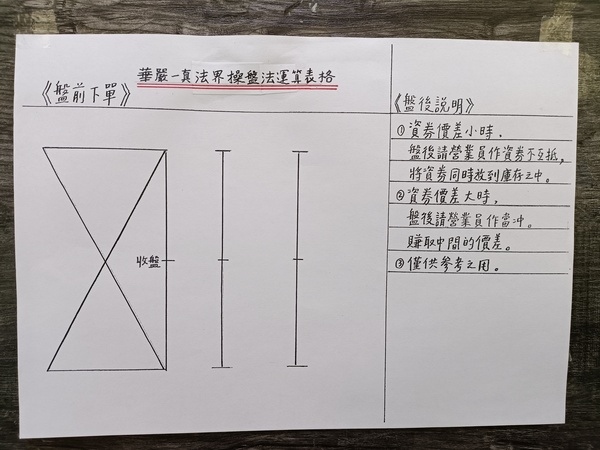 華嚴一真法界操盤法運算表格
《盤前下單》
收盤
《盤後説明》
①資券價差小時，
盤後請營業員作資券不互抵，
將資券同時放到庫存之中。
②資券價差大時，
盤後請營業員作當沖。
賺取中間的價差。
③僅供參考之用。